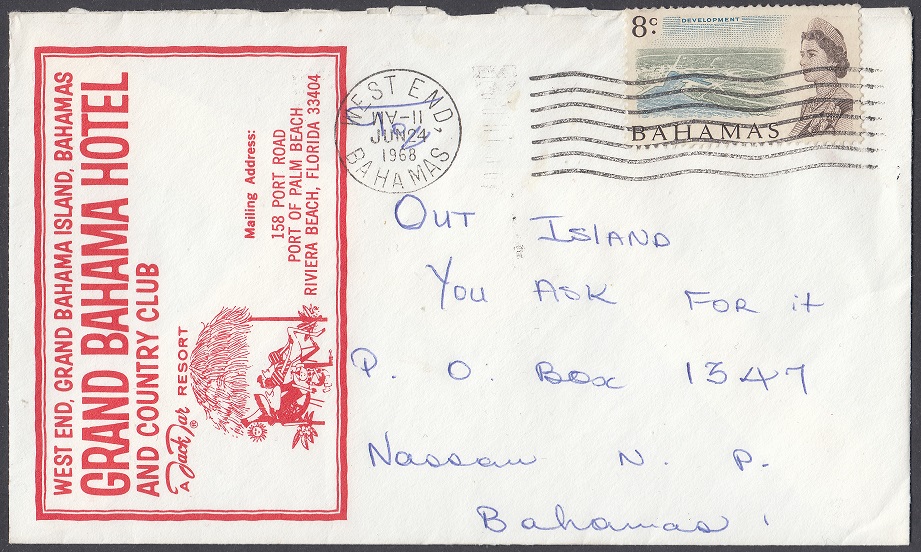 WEST END, GRAND BAHAMA ISLAND, BAHAMAS
GRAND BAHAMA HOTEL
AND COUNTRY CLUB
A Jack Tar ® RESORT
Mailing Address:
158 PORT ROAD
PORT OF PALM BEACH
RIVIERA BEACH, FLORIDA 33404
WEST END,
JUN 24
1968
BAHAMAS
8c
DEVELOPMENT
BAHAMAS
OUT ISLAND
YOU ASK FOR it
P. O. BOX 1347
Nassau N. P.
Bahamas